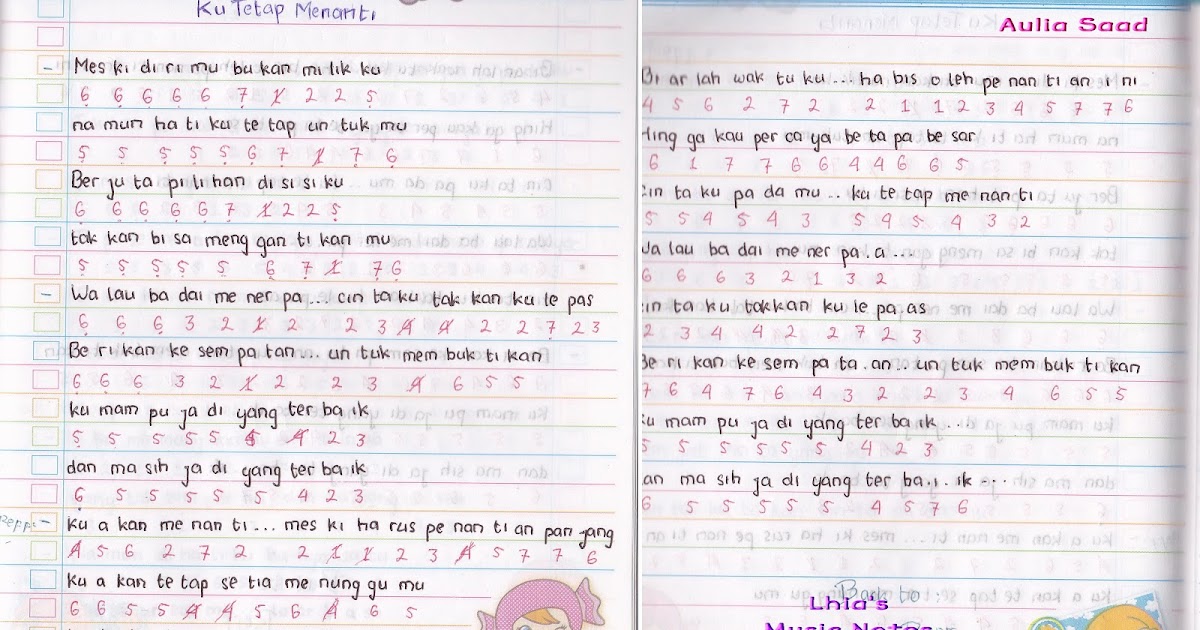 Ku Tetap Menanti
Mes ki di ri mu bu kan mi lik ku
6̣ 6̣ 6̣ 6̣ 6̣ 7̣ 1̸ 2 2 5̣
na mun ha ti ku te tap un tuk mu
5̣ 5̣ 5̣ 5̣ 5̣ 6̣ 7̣ 1̸ 7̣ 6̣
Ber ju ta pi li han di si si ku
6̣ 6̣ 6̣ 6̣ 6̣ 7̣ 1̸ 2 2 5̣
tak kan bi sa meng gan ti kan mu
5̣ 5̣ 5̣ 5̣ 5̣ 6̣ 7̣ 1̸ 7̣ 6̣
Wa lau ba dai me ner pa... cin ta ku tak kan ku le pas
6̣ 6̣ 6̣ 3 2 1̸ 2 2 3 4̸ 4̸ 2 2 7̣ 2 3
Be ri kan ke sem pa tan... un tuk mem buk ti kan
6̣ 6̣ 6̣ 3 2 1̸ 2 2 3 4̸ 6 5 5
ku mam pu ja di yang ter ba ik
5̣ 5 5 5 5 4̸ 2 3
dan ma sih ja di yang ter ba ik
6̣ 5 5 5 5 5 4 2 3
Ku a kan me nan ti... mes ki ha rus pe nan ti an pan jang
4̸ 5 6 2 7 2 2 1̸ 1̸ 2 3 4̸ 5 7 7 6
Ku a kan te tap se tia me nung gu mu
6 6 5 5 4̸ 4̸ 5 6 4̸ 6 5
Aulia Saad
Bi ar lah wak tu ku... ha bis o leh pe nan ti an i ni
4 5 6 2 7 2 2 1 1 2 3 4 5 7 7 6
Hing ga kau per ca ya be ta pa be sar
6 1 7 7 6 6 4 4 6 6 5
cin ta ku pa da mu.. ku te tap me nan ti
5 5 4 5 4 3 5 4 5 4 3 2
Wa lau ba dai me ner pa.a...
6 6 6 3 2 1 3 2
cin ta ku takkan ku le pa.as
2 3 4 4 2 2 7 2 3
Be ri kan ke sem pa ta.an.. un tuk mem buk ti kan
7 6 4 7 6 4 3 2 2 3 4 6 5 5
ku mam pu ja di yang ter ba ik...
5 5 5 5 5 5 4 2 3
an ma sih ja di yang ter ba.i.ik...
6 5 5 5 5 5 4 5 7 6
Back to
Lhia's
Music Notes